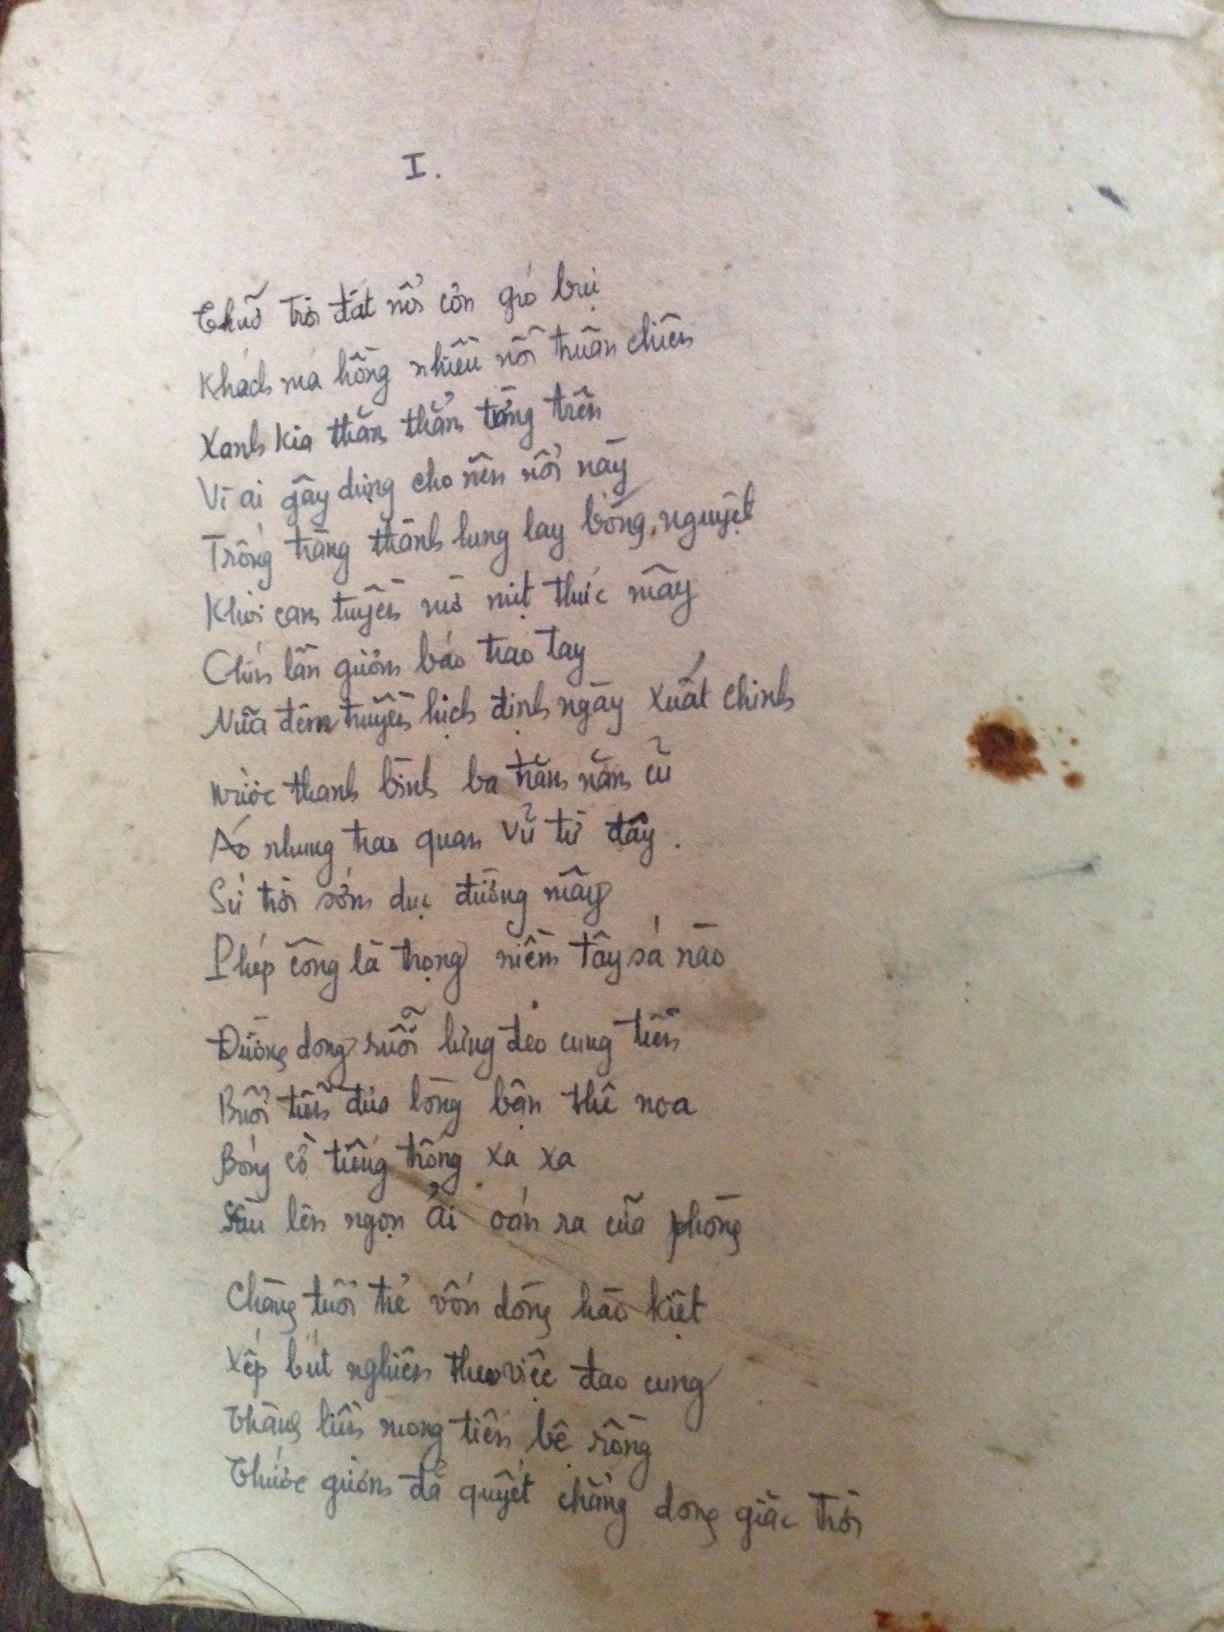 I.
Thuở trời đất nổi cơn gió bụi
Khách má hồng nhiều nỗi truân chiên
Xanh kia thăm thẳm tầng trên
Vì ai gây dựng cho nên nỗi này
Trống tràng thành lung lay bóng nguyệt
Khói cam tuyền mờ mịt thức mây
Chín lần gươm báo trao tay
Nửa đêm truyền hịch định ngày xuất chinh
Nước thanh bình ba trăm năm cũ
Áo nhung trao quan vũ từ đây.
Sứ trời sớm dục đường mây
Phép công là trọng niềm tây sá nào
Đường dong ruổi lưng đeo cung tiễn
Buổi tiễn đưa lòng bận thê noa
Bóng cờ tiếng trống xa xa
Sầu lên ngọn ải oán ra cửa phòng
Chàng tuổi trẻ vốn dòng hào kiệt
Xếp bút nghiên theo việc đao cung
Thành liền mong tiến bệ rồng
Thước gươm đã quyết chẳng dong giặc trời